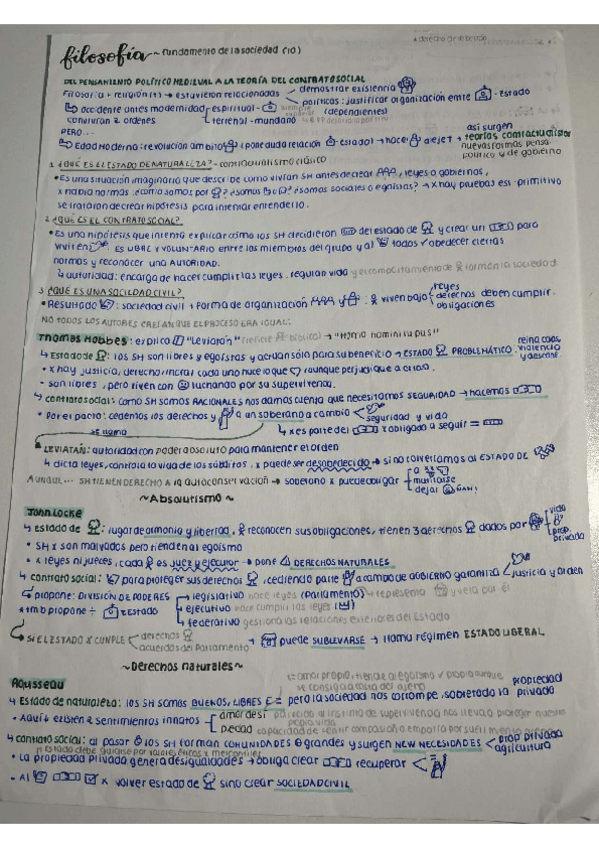 * derecho de rebelión
filosofía ~ fundamento de la sociedad (10)
DEL PENSAMIENTO POLÍTICO MEDIEVAL A LA TEORÍA DEL CONTRATO SOCIAL
Filosofía + religión (†) → estuvieron relacionadas demostrar existencia
políticas: justificar organización entre - Estado
occidente antes modernidad espiritual - siempre superior (dependientes)
convivían 2 órdenes terrenal - mundano
PERO... así surgen
Edad moderna: revolución ámbito pone duda relación estado → hace alejet → teorías contractualistas
nuevas formas pensa. político y de gobierno
1. ¿QUÉ ES EL ESTADO DE NATURALEZA? - contractualismo clásico
• Es una situación imaginario que describe como vivían SH antes de crear, leyes o gobiernos,
x había normas: ¿cómo somos por? ¿somos o? ¿somos sociales o egoístas? → x hay pruebas est. primitivo
se trataron de crear hipótesis para intentar entenderlo.
2. ¿QUÉ ES EL CONTRATO SOCIAL?
• Es una hipótesis que intenta explicar cómo los SH decidieron del estado de y crear un para
vivir en. Es LIBRE Y VOLUNTARIO entre los miembros del grupo y al todos obedecer ciertas
normas y reconocer una AUTORIDAD.
↳ autoridad: encarga de hacer cumplir las leyes. regulan vida y el comportamiento de forman la sociedad
3. ¿QUÉ ES UNA SOCIEDAD CIVIL?
• Resultado: sociedad civil → Forma de organización y: viven bajo leyes
derechos deben cumplir.
obligaciones
NO TODOS LOS AUTORES CREÍAN QUE EL PROCESO ERA IGUAL:
Thomas Hobbes: explicó "Leviatán" (refiere bíblico) → "Homo homini lupus" reina caos,
↳ Estado de: los SH son libres y egoístas y actúan sólo para su beneficio → ESTADO PROBLEMÁTICO. violencia
• x hay justicia, derecho, moral cada uno hace lo que aunque perjudique a otros.
- son libres, pero viven con luchando por su supervivencia.
↳ contrato social: como SH somos RACIONALES nos damos cuenta que necesitamos SEGURIDAD → hacemos
• Por el pacto: cedemos los derechos y a un soberano a cambio
seguridad y vida
se llama ↳ x es parte del x obligado a seguir =
LEVIATÁN: autoridad con poder absoluto para mantener el orden
↳ dicta leyes, controla la vida de los súbditos, x puede ser desobedecido → sino volveríamos al ESTADO DE
AUNQUE... SH TIENEN DERECHO A la autoconservación → soberano x puede obligar a
mutilarse
dejar
~ Absolutismo ~
John Locke
↳ estado de: lugar de armonía y libertad. reconocen sus obligaciones, tienen 3 derechos dados por vida
prop. privada
• SH x son malvados pero tienden al egoísmo
• x leyes ni jueces, cada es juez y ejecutor → pone DERECHOS NATURALES
↳ contrato social: para proteger sus derechos, cediendo parte a cambo de GOBIERNO garantiza justicia y orden
↳ propone: DIVISIÓN DE PODERES legislativo hace leyes (parlamento) representa y vela por él
* tmb propone ÷ Estado ejecutivo hace cumplir las leyes
federativo gestiona las relaciones exteriores del Estado
SI EL ESTADO X CUMPLE derechos
acuerdos del Parlamento → puede SUBLEVARSE → llamo régimen ESTADO LIBERAL
~ Derechos naturales ~
Rousseau
↳ amor propio, tiende al egoísmo y propio aunque se consiga a costa del ajeno
↳ Estado de naturaleza: los SH somos BUENOS, LIBRES E = pero la sociedad nos corrompe, sobretodo la propiedad privada
• Aquí existen 2 sentimientos innatos amor de sí parecido al instinto de supervivencia nos lleva a proteger nuestra propia vida
piedad capacidad de sentir compasión o empatía por sufrimiento
↳ contrato social: al pasar los SH forman COMUNIDADES + grandes y surgen NEW NECESIDADES prop privada
agricultura
• La propiedad privada genera desigualdades → obliga crear recuperar
• Al x volver estado de sino crear SOCIEDAD CIVIL